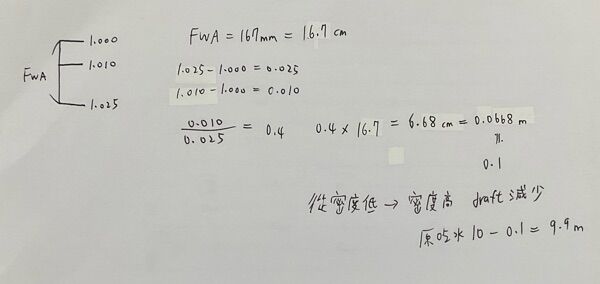 FWA
1.000
1.010
1.025
FWA = 167mm = 16.7 cm
1.025 - 1.000 = 0.025
1.010 - 1.000 = 0.010
0.010
0.025
= 0.4
0.4 × 16.7 = 6.68 cm = 0.0668 m
≒
0.1
從密度低 → 密度高 draft 減少
原吃水 10 - 0.1 = 9.9 m